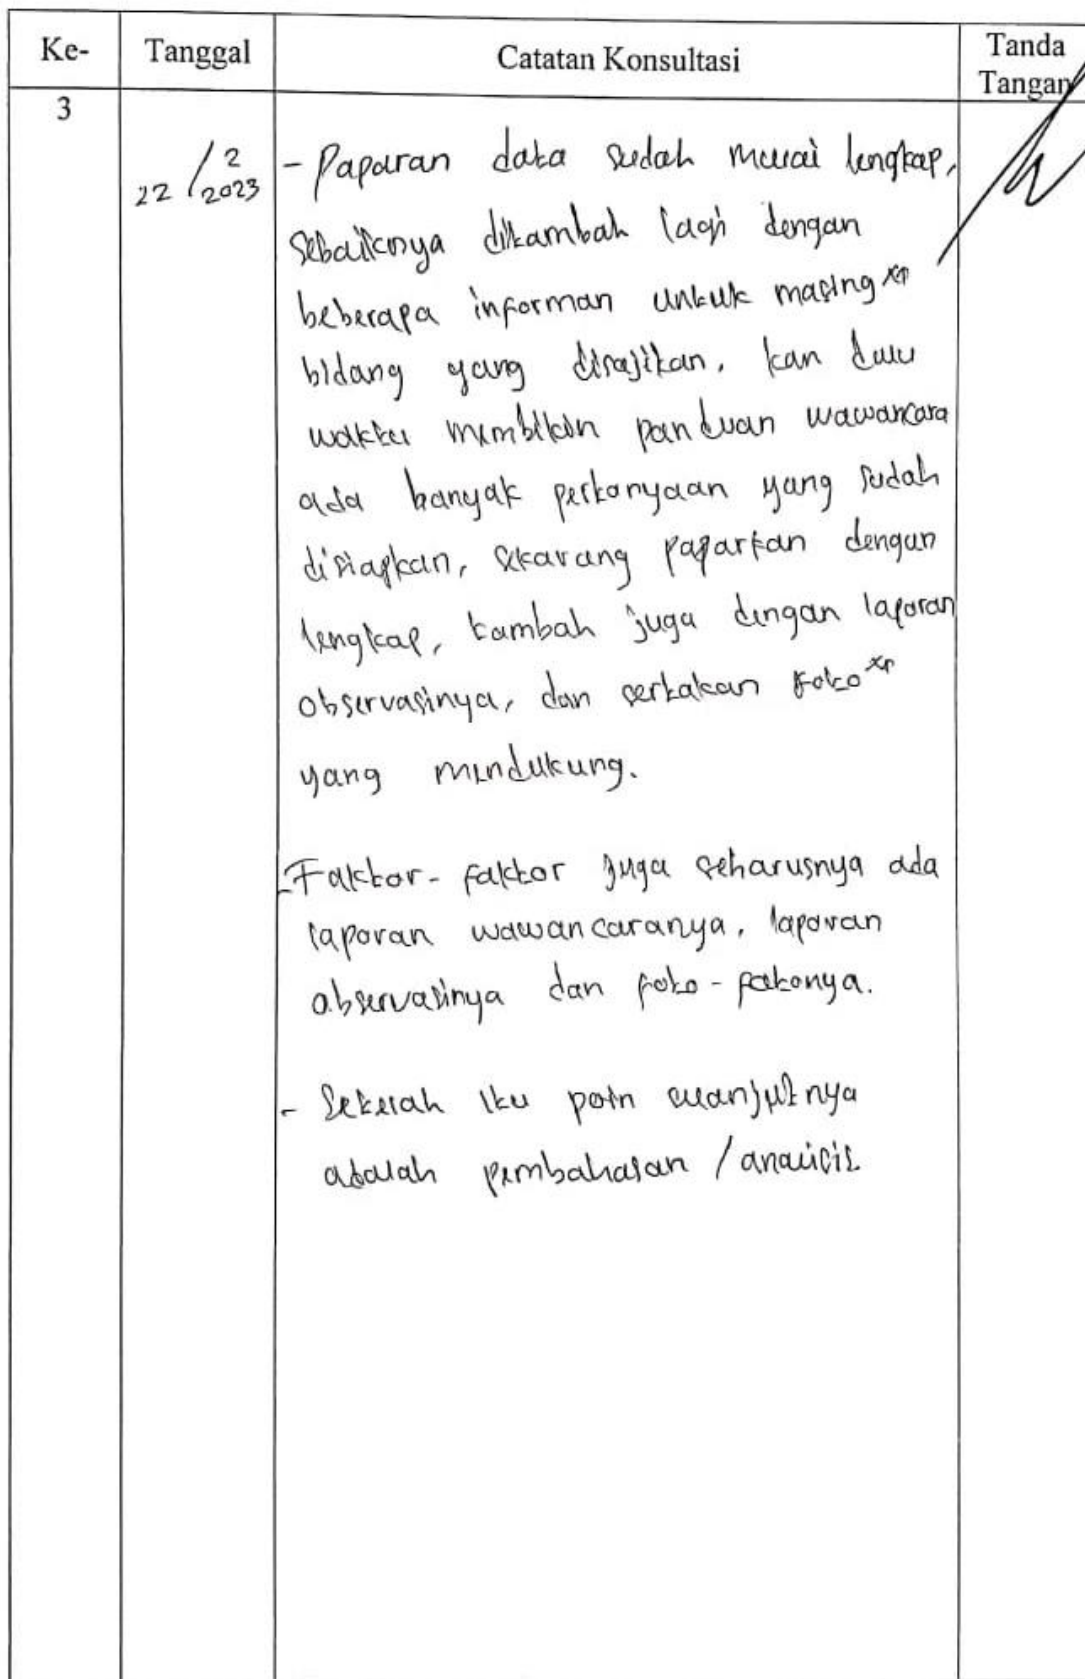 Ke- Tanggal Catatan Konsultasi Tanda Tangan
3
22/2 2023
- Paparan data sudah mulai lengkap,
sebaiknya ditambah lagi dengan
beberapa informan untuk masing xn
bidang yang disajikan, kan dulu
waktu membikin panduan wawancara
ada banyak pertanyaan yang sudah
disiapkan, sekarang paparkan dengan
lengkap, tambah juga dengan laporan
observasinya, dan sertakan foto xn
yang mendukung.
- Faktor-faktor juga seharusnya ada
laporan wawancaranya, laporan
observasinya dan foto-fotonya.
- Setelah itu poin selanjutnya
adalah pembahasan / analisis